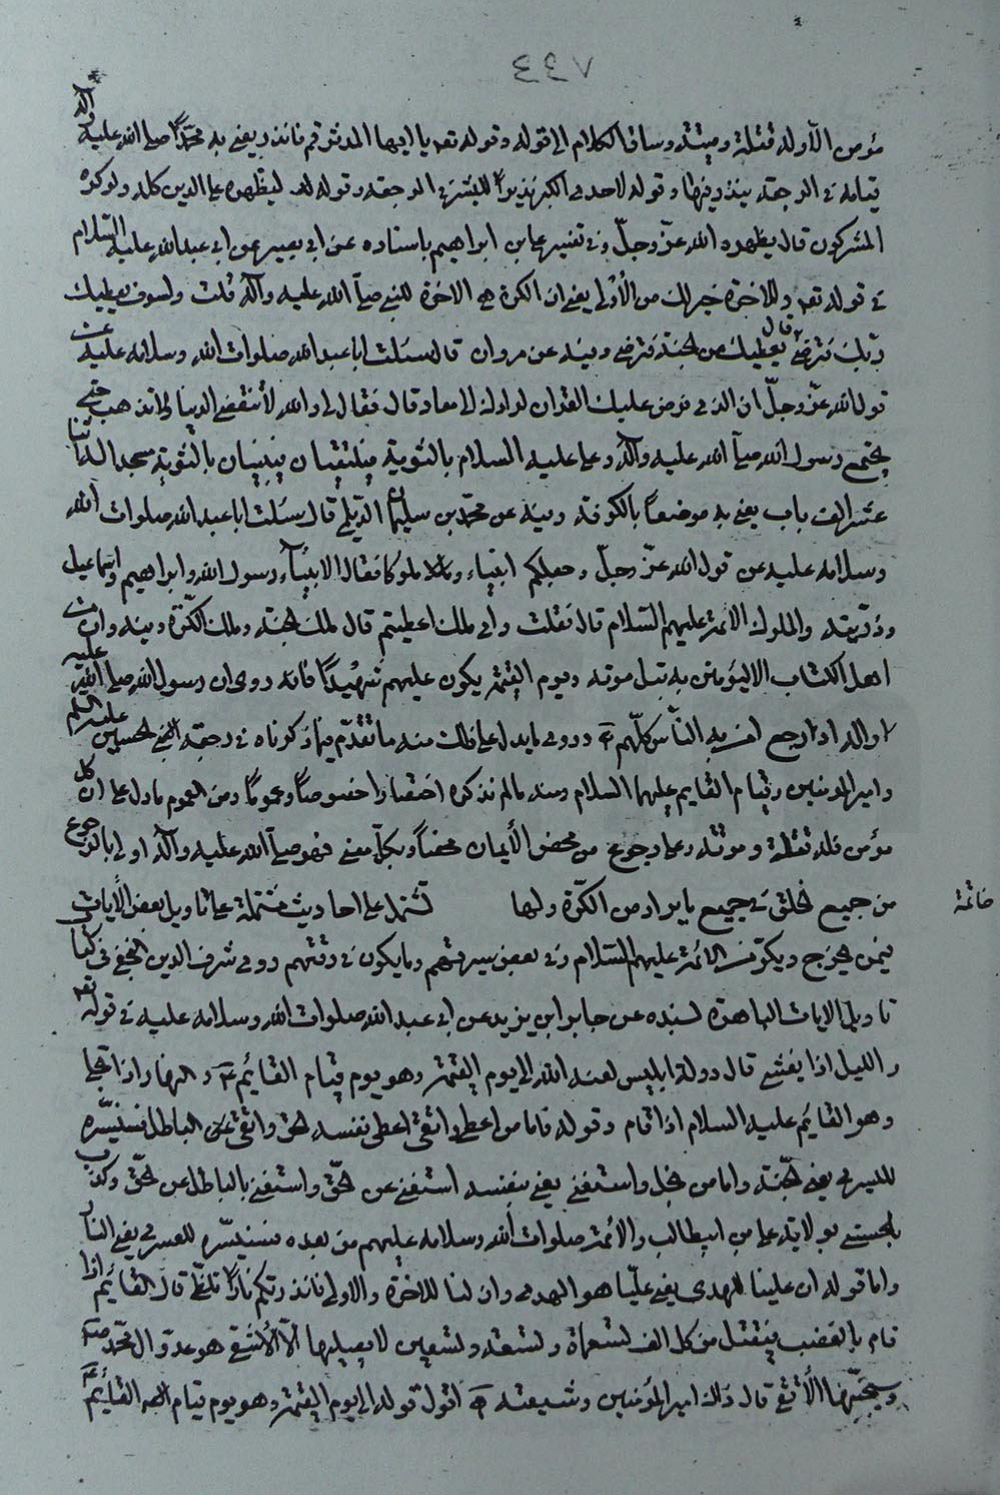 ٧٤٤
مؤمن الا وله قتلة وميتة وساق الكلام الى قوله وقوله تعه يا ايها المدثر قم فانذر يعنى به محمدا صلى الله عليه وآله
قيامه فى الرجعة ينذر فيها وقوله لاحدى الكبر نذيرا للبشر فى الرجعة وقوله تعه ليظهره على الدين كله ولو كره
المشركون قال يظهره الله عز وجل وفى تفسير على بن ابراهيم باسناده عن ابى بصير عن ابى عبد الله عليه السلام
فى قوله تعه وللاخرة خير لك من الأولى يعنى ان الكرة هى الاخرة للنبى صلى الله عليه وآله قلت ولسوف يعطيك
ربك فترضى قال يعطيك من الجنة فترضى وفيه عن مروان قال سئلت ابا عبد الله صلوات الله وسلامه عليه عن
قول الله عز وجل ان الذى فرض عليك القران لرادك الى معاد قال فقال لى لا والله لا تنقضى الدنيا ولا تذهب حتى
يجتمع رسول الله صلى الله عليه وآله وعلى عليه السلام بالثوية فيلتقيان ويبنيان بالثوية مسجدا له اثنا
عشر الف باب يعنى به موضعا بالكوفة وفيه عن محمد بن سليمان الديلمى قال سئلت ابا عبد الله صلوات الله
وسلامه عليه عن قول الله عز وجل وجعلكم انبياء وملوكا فقال الانبياء رسول الله وابراهيم واسماعيل
وذريته والملوك الائمة عليهم السلام قال فقلت واى ملك اعطيتم قال ملك الجنة وملك الكرة وفيه وان من
اهل الكتاب الا ليؤمنن به قبل موته ويوم القيمة يكون عليهم شهيدا فانه روى ان رسول الله صلى الله عليه
وآله اذا رجع امن به الناس كلهم وروى ما يدل على ذلك منه ما تقدم فيما ذكرناه فى رجعة الحسين عليه السلم
وامير المؤمنين وقيام القايم عليهما السلام ومنه مالم نذكره اختصارا خصوصا وعموما ومن العموم ما دل على ان كل
مؤمن فله قتلة وموتة وعلى رجوع من محض الأيمان محضا وبكل معنى فهو صلى الله عليه وآله اولى بالرجوع
من جميع الخلق فى جميع ما يراد من الكرة ولها تشتمل على احاديث مشتملة على تاويل بعض الايات فى
خاتمة
فيمن يخرج ويكر من الائمة عليهم السلام وفى بعض سيرتهم وما يكون فى وقتهم روى شرف الدين النجفى فى كتاب
تاويل الايات الباهرة بسنده عن جابر ابن يزيد عن ابى عبد الله صلوات الله وسلامه عليه فى قوله تعه
والليل اذا يغشى قال دولة ابليس لعنه الله الى يوم القيمة وهو يوم قيام القائم والنهار اذا تجلى
وهو القايم عليه السلام اذا قام وقوله فاما من اعطى واتقى اعطى نفسه الحق واتقى الباطل فسنيسره
لليسرى يعنى الجنة واما من بخل واستغنى يعنى بنفسه استغنى عن الحق واستغنى بالباطل عن الحق وكذب
بالحسنى بولاية على بن ابيطالب والائمة صلوات الله وسلامه عليهم من بعده فسنيسره للعسرى يعنى النار
واما قوله ان علينا للهدى يعنى عليا هو الهدى وان لنا للاخرة والاولى فانذرتكم نارا تلظى قال القائم اذا
قام بالغضب فيقتل من كل الف تسعمائة وتسعة وتسعين لا يصليها الا الأشقى هو عدو ال محمد
وسيجنبها الأتقى قال ذاك امير المؤمنين وشيعته اقول قوله الى يوم القيمة وهو يوم قيام القائم